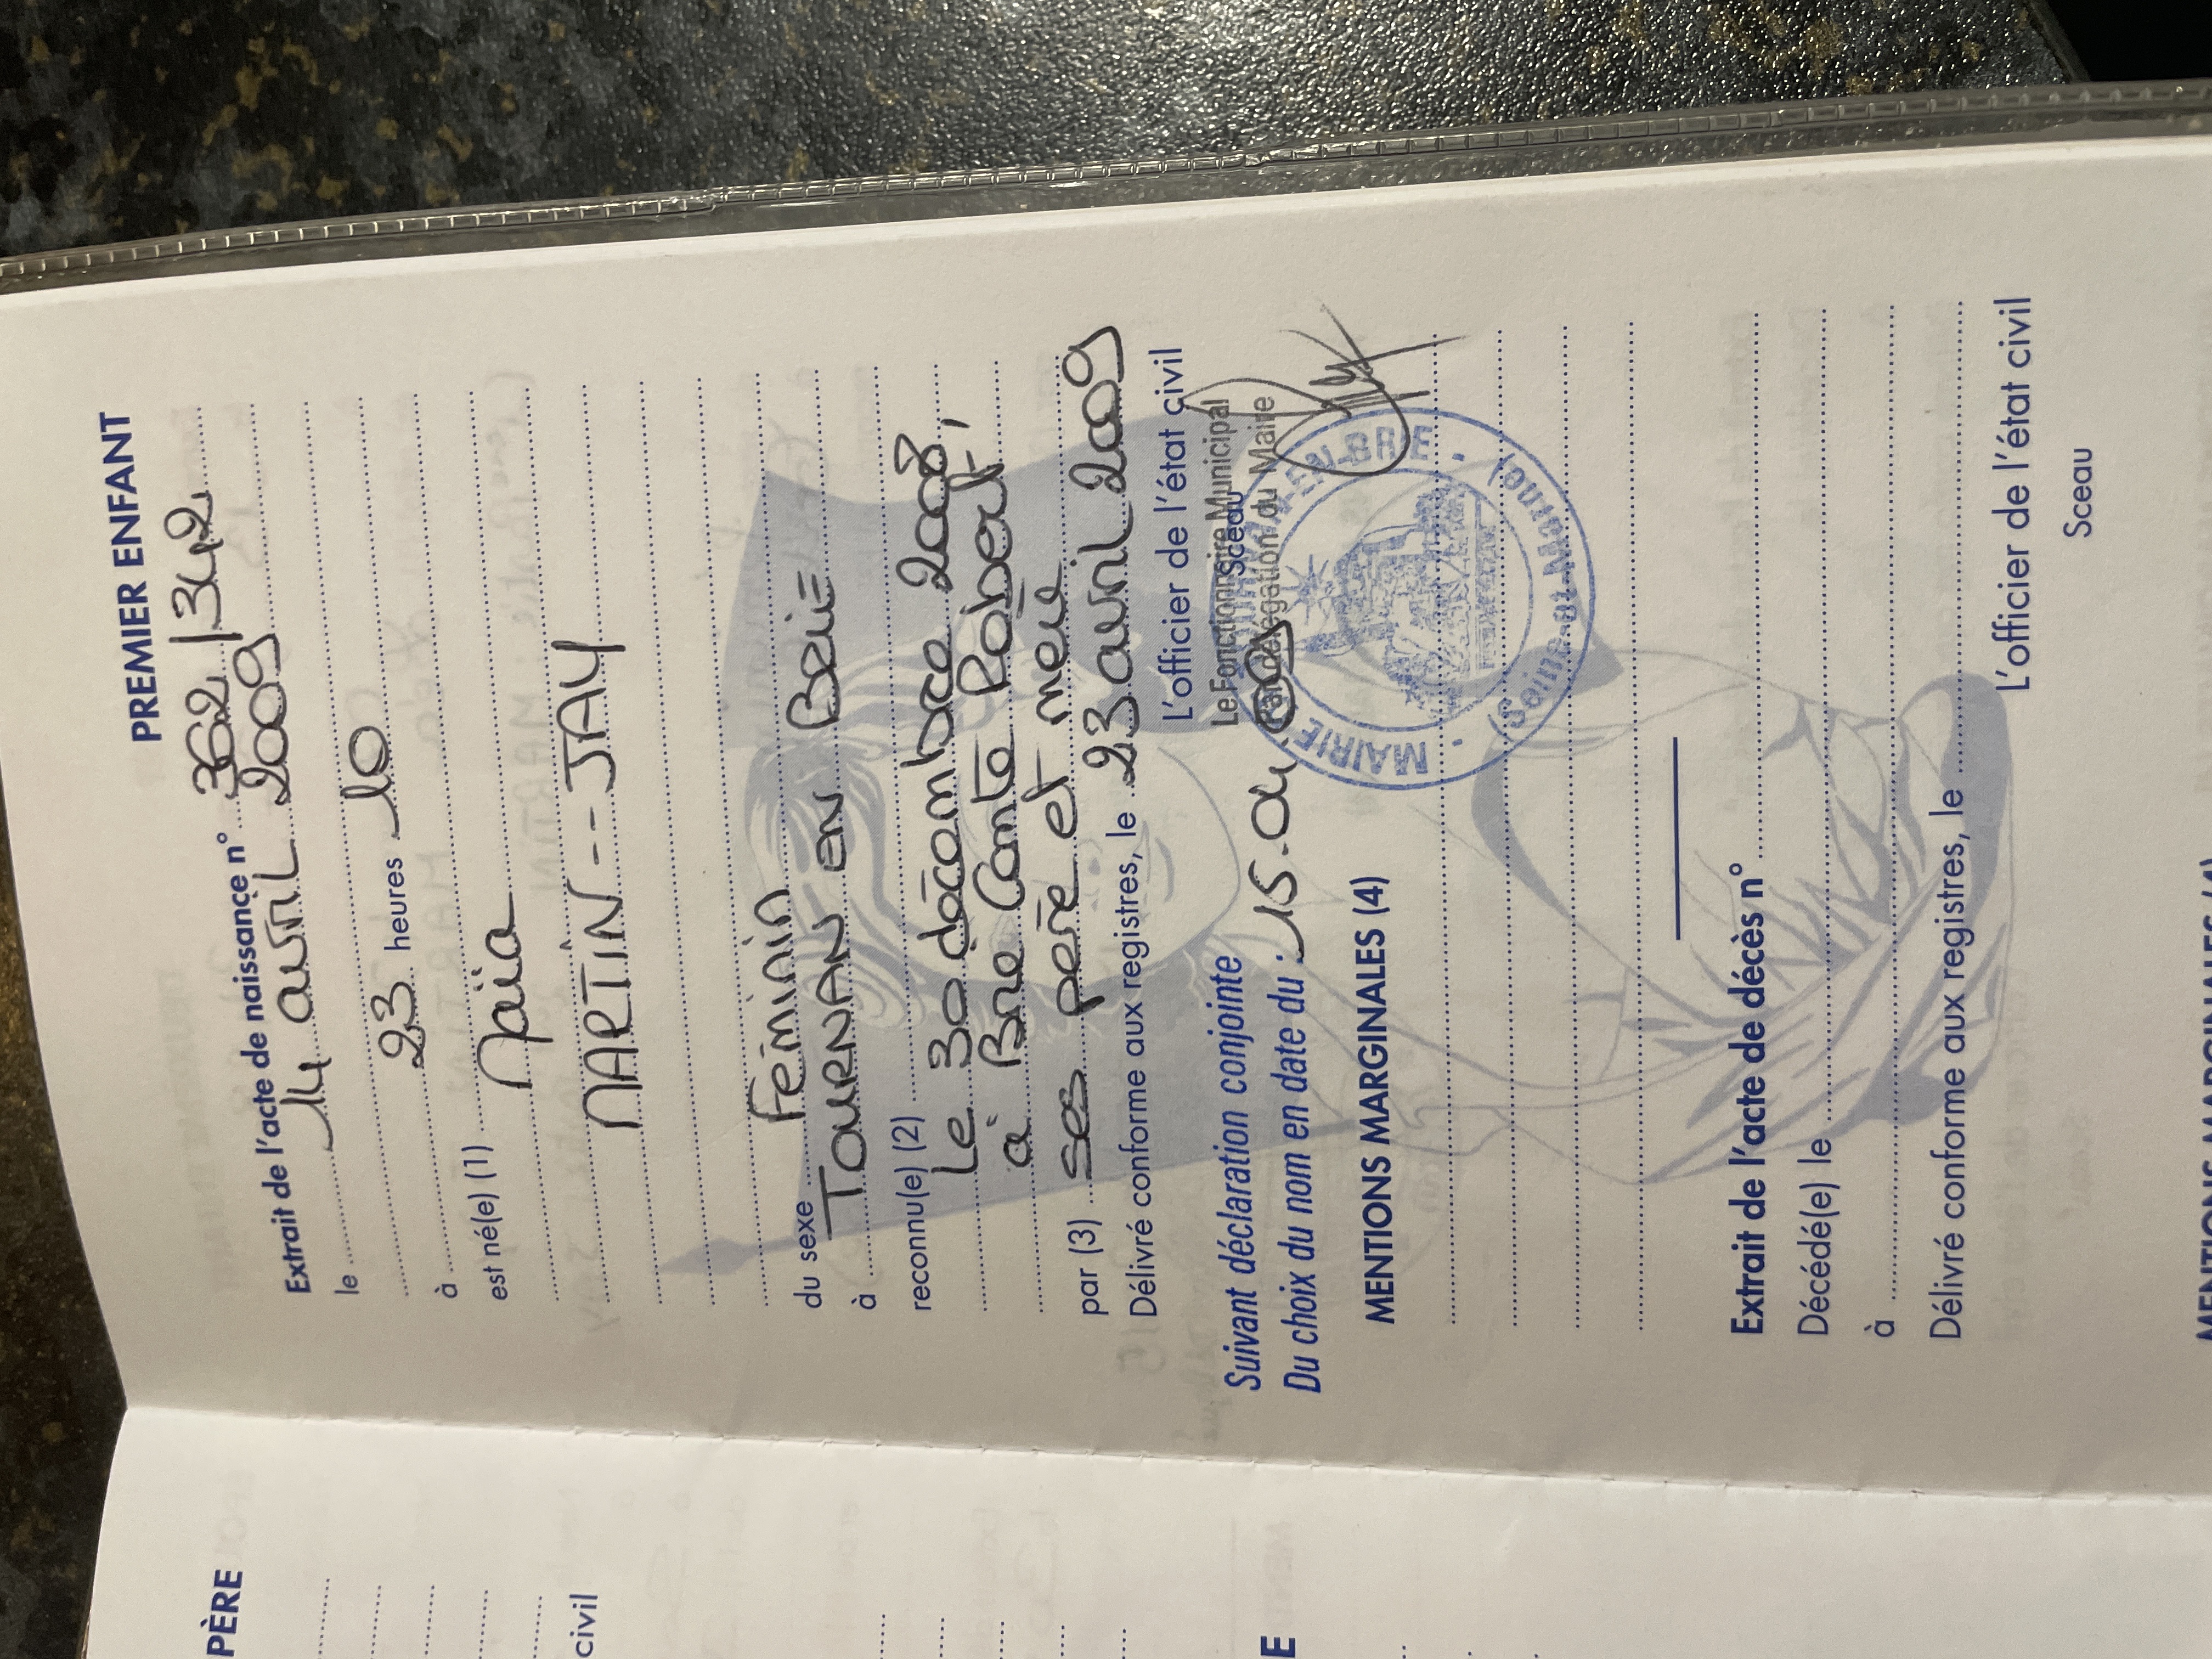 PREMIER ENFANT
Extrait de l'acte de naissance n° 362 / 342
le 14 avril 2009
23 heures 10
à
est né(e) (1) Maïa
MARTIN -- JAY
du sexe Féminin
à TOURNAN en BRIE
reconnu(e) (2)
Le 30 décembre 2008,
à Brie Comte Robert,
par (3) ses père et mère
Délivré conforme aux registres, le 23 avril 2009
L'officier de l'état civil
Le Fonctionnaire Municipal
Sceau
Par délégation du Maire
Suivant déclaration conjointe
Du choix du nom en date du : 15.04
MAIRIE EN-BRIE - (Seine-et-Marne) -
MENTIONS MARGINALES (4)
Extrait de l'acte de décès n°
Décédé(e) le
à
Délivré conforme aux registres, le
L'officier de l'état civil
Sceau
PÈRE
civil
E